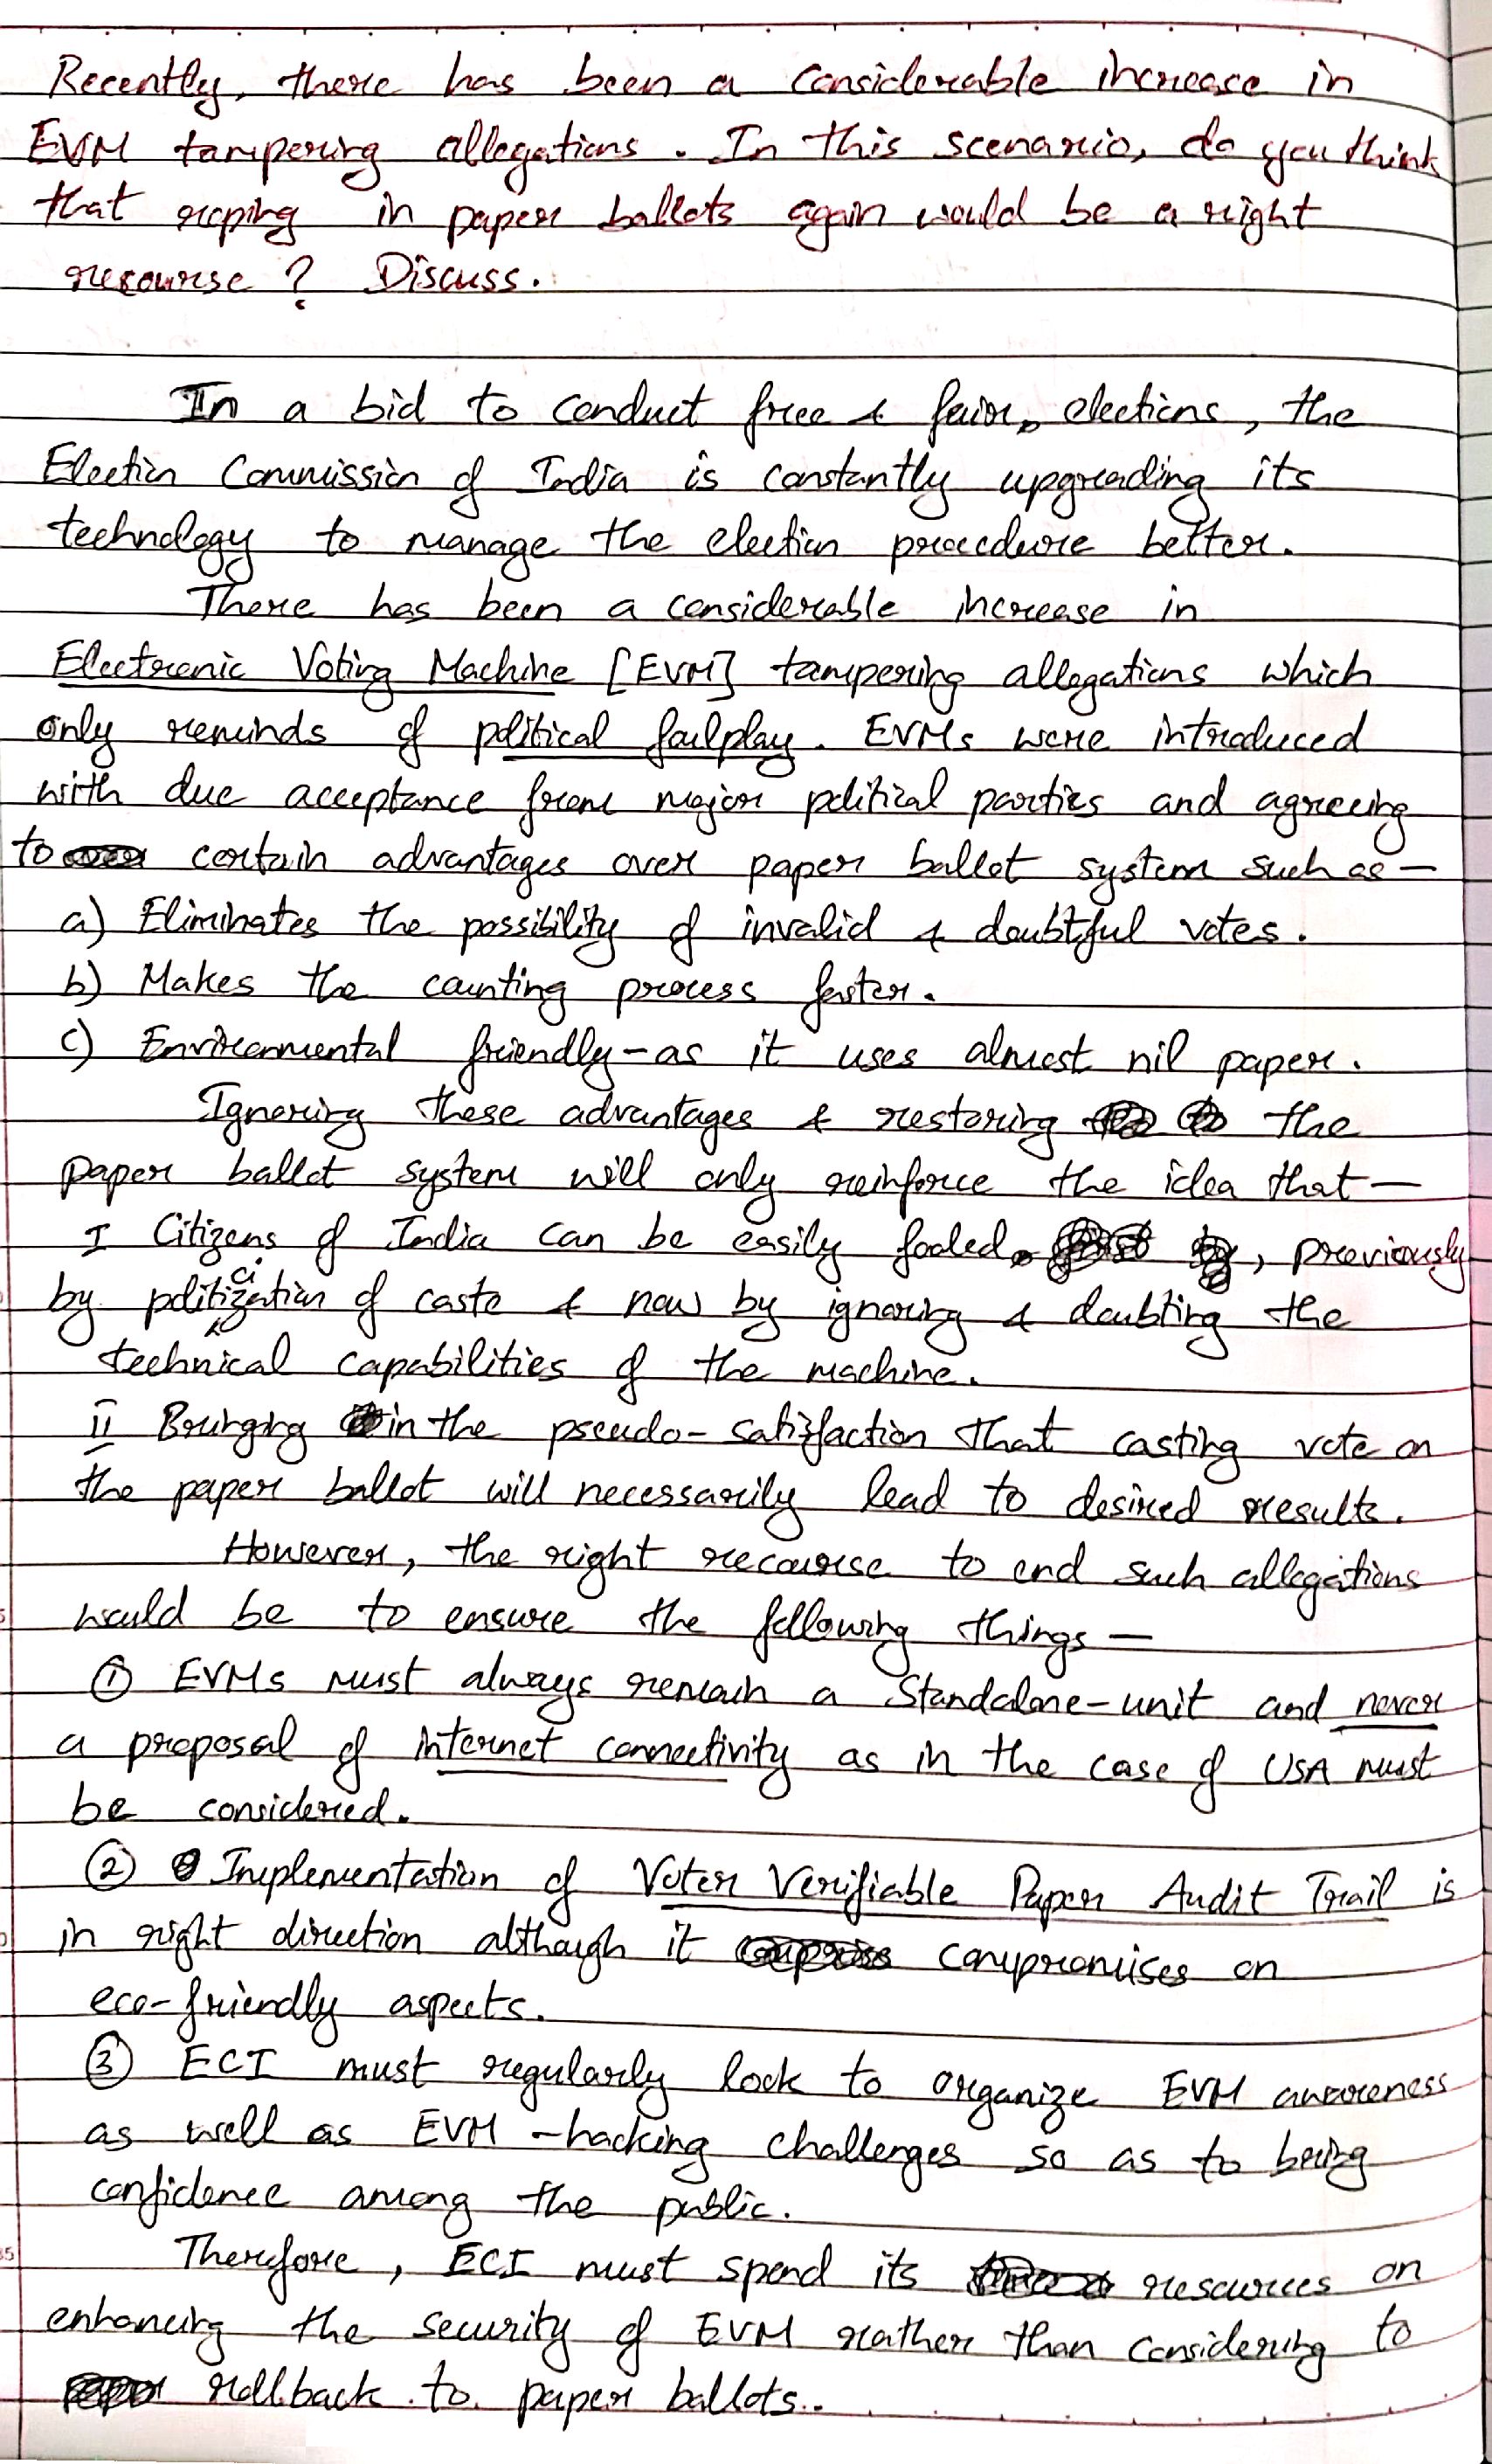 Recently, there has been a considerable increase in
EVM tampering allegations. In this scenario, do you think
that roping in paper ballots again would be a right
recourse? Discuss.
In a bid to conduct free & fair, elections, the
Election Commission of India is constantly upgrading its
technology to manage the election procedure better.
There has been a considerable increase in
Electronic Voting Machine [EVM] tampering allegations which
only reminds of political foulplay. EVMs were introduced
with due acceptance from major political parties and agreeing
to certain advantages over paper ballot system such as —
a) Eliminates the possibility of invalid & doubtful votes.
b) Makes the counting process faster.
c) Environmental friendly - as it uses almost nil paper.
Ignoring these advantages & restoring the
paper ballot system will only reinforce the idea that —
I Citizens of India can be easily fooled, previously
by politicization of caste & now by ignoring & doubting the
technical capabilities of the machine.
II Bringing in the pseudo-satisfaction that casting vote on
the paper ballot will necessarily lead to desired results.
However, the right recourse to end such allegations
would be to ensure the following things —
① EVMs must always remain a Standalone-unit and never
a proposal of internet connectivity as in the case of USA must
be considered.
② Implementation of Voter Verifiable Paper Audit Trail is
in right direction although it compromises on
eco-friendly aspects.
③ ECI must regularly look to organize EVM awareness
as well as EVM-hacking challenges so as to bring
confidence among the public.
Therefore, ECI must spend its resources on
enhancing the security of EVM rather than considering to
rollback to paper ballots.